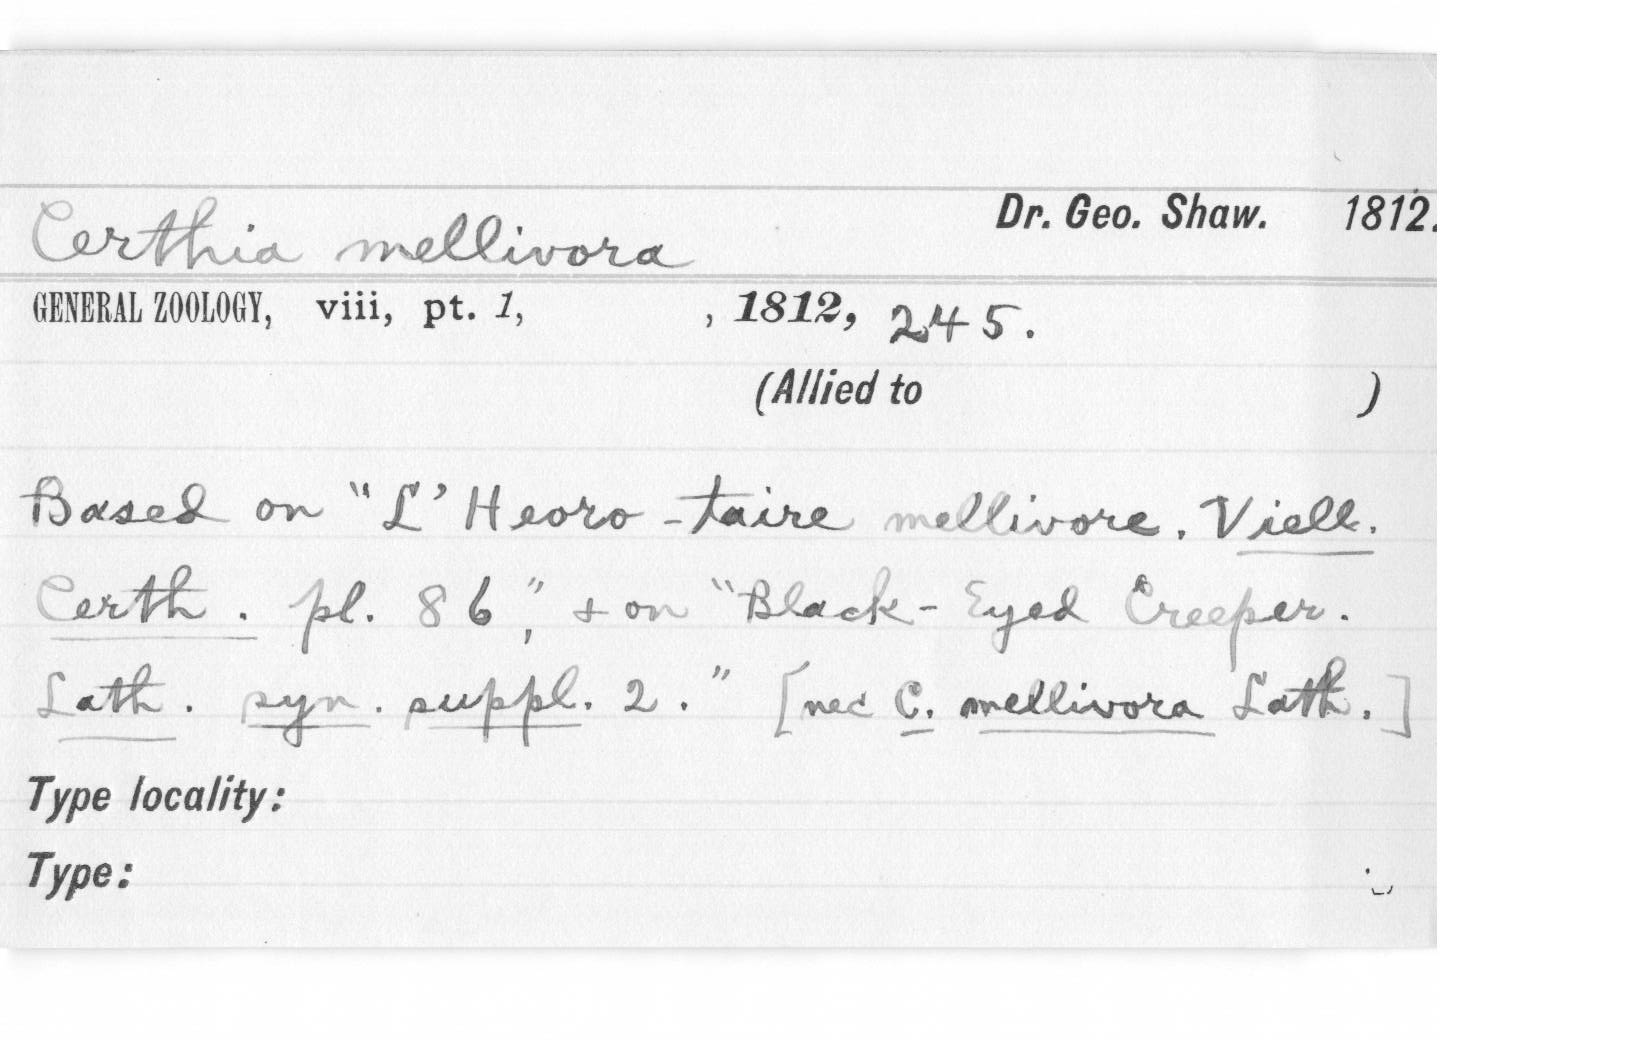 Dr. Geo. Shaw. 1812.
Certhia mellivora
GENERAL ZOOLOGY, viii, pt. 1, , 1812, 245.
(Allied to )
Based on "L'Heoro-taire mellivore. Viell.
Certh. pl. 86", & on "Black-Eyed Creeper.
Lath. syn. suppl. 2." [nec C. mellivora Lath.]
Type locality:
Type: